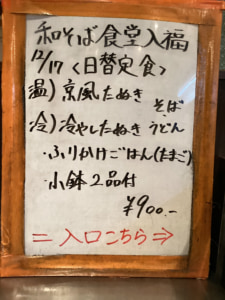 和そば食堂入福
12/17 〈日替定食〉
温)京風たぬき そば
冷)冷やしたぬき うどん
・ふりかけごはん(たまご)
・小鉢2品付
¥900.-
＝入口こちら⇒